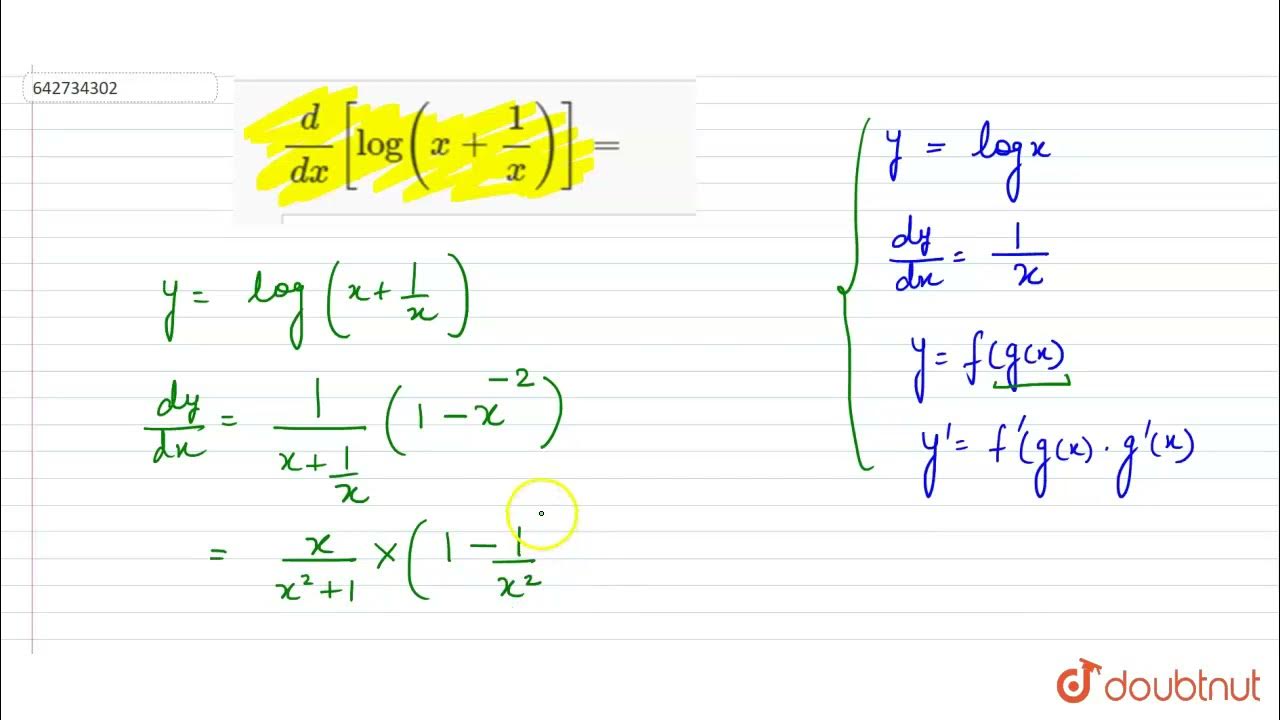 642734302
d/dx [log(x + 1/x)] =
y = log (x + 1/x)
dy/dx = 1/(x + 1/x) (1 - x^-2)
= x/(x^2 + 1) × (1 - 1/x^2
y = log x
dy/dx = 1/x
y = f(g(x)
y' = f'(g(x) · g'(x)
doubtnut